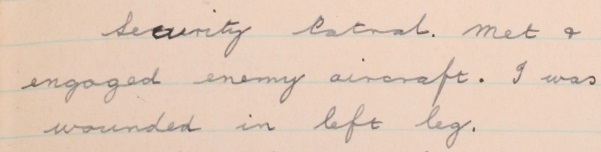 Security Patrol. Met &
engaged enemy aircraft. I was
wounded in left leg.